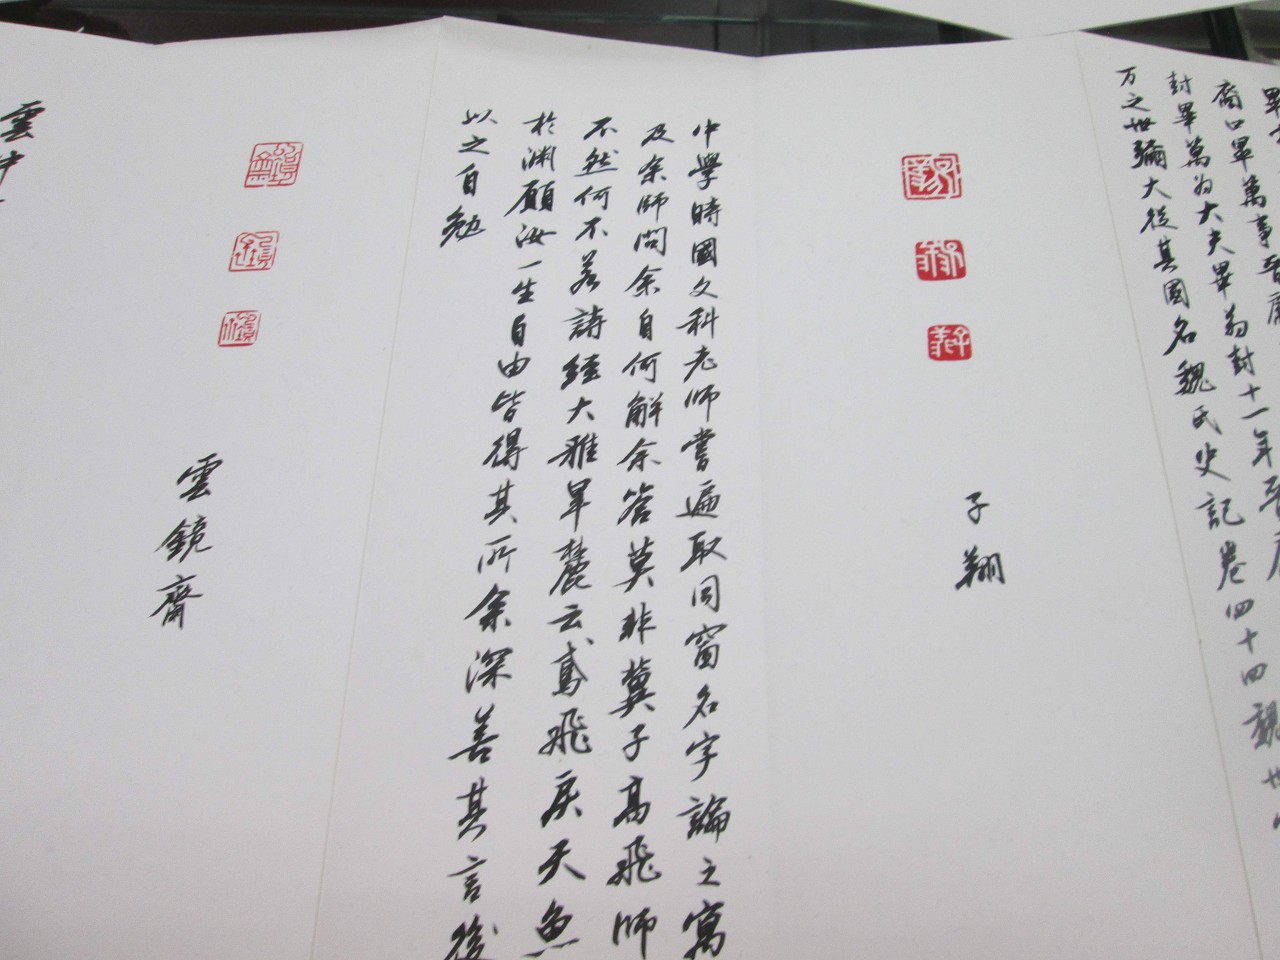 裔曰畢萬事晉
封畢萬為大夫畢萬封十一年晉
万之世彌大從其國名魏氏史記卷四十四魏世
子翔
中學時國文科老師嘗遍取同窗名字論之寓
及余師問余自何解余答莫非冀子高飛師
不然何不若詩經大雅旱麓云鳶飛戾天魚
於淵願汝一生自由皆得其所余深善其言後
以之自勉
雲鏡齋
雲